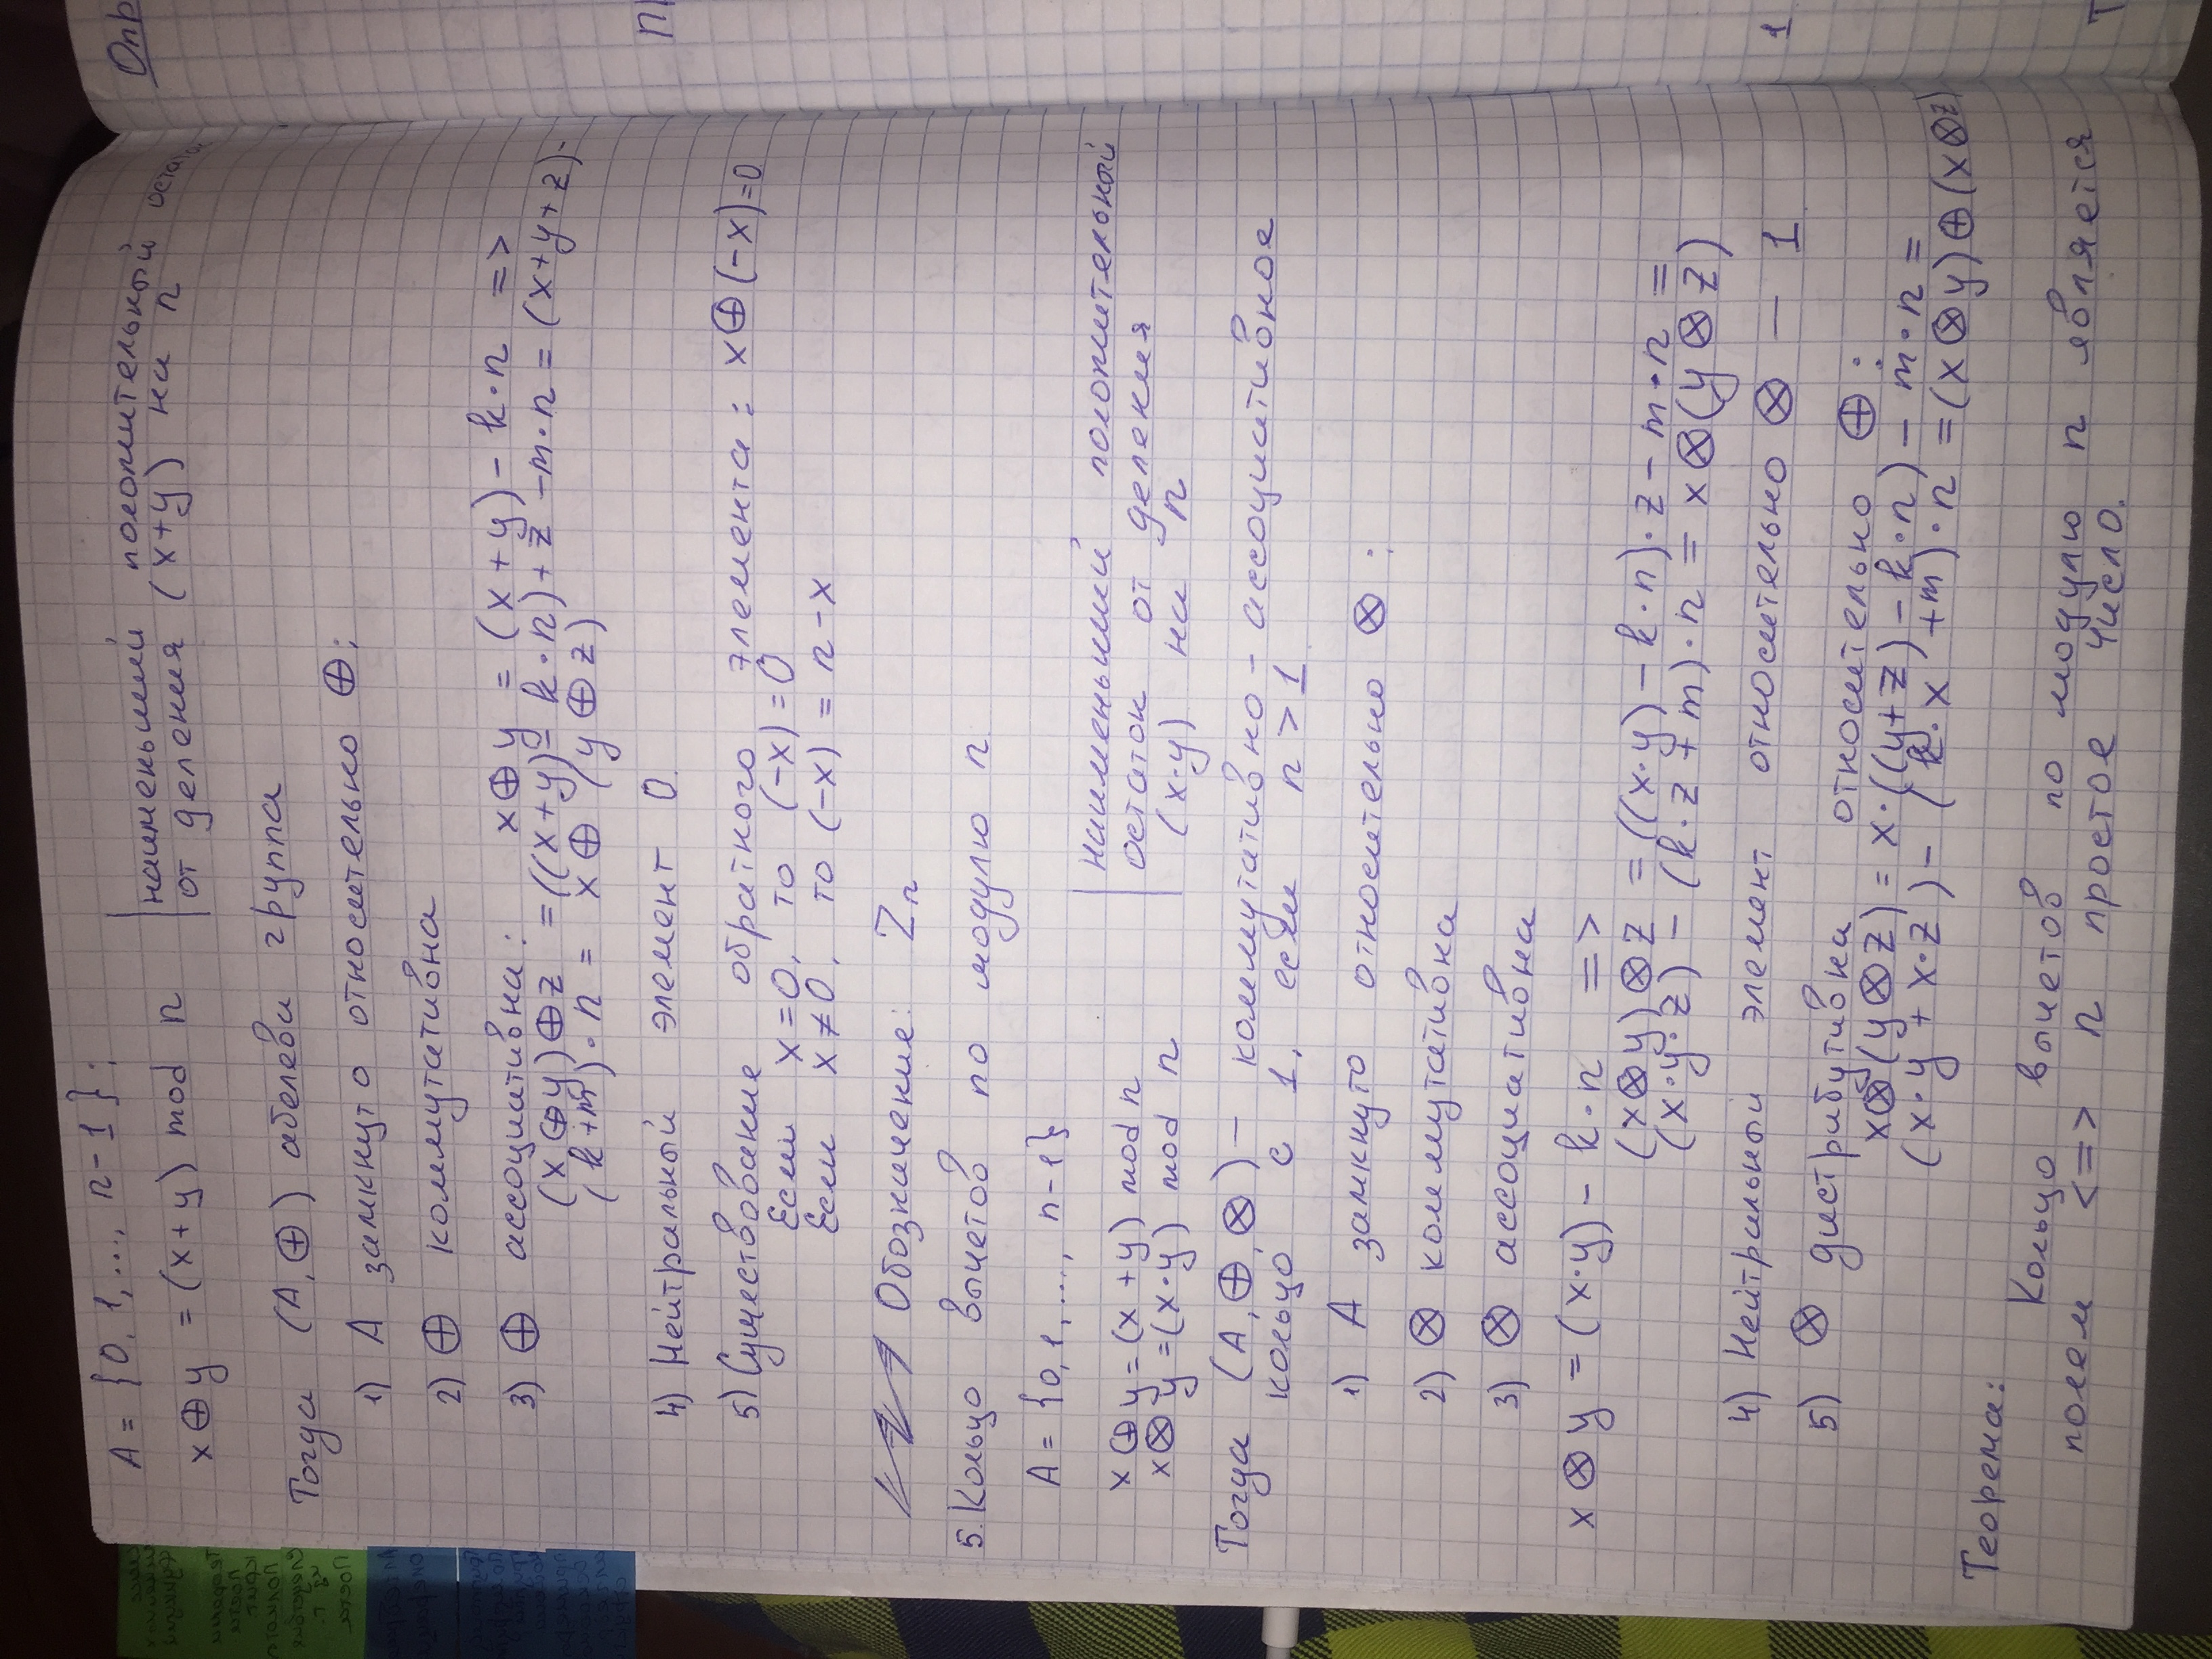 A = {0, 1, ..., n-1};
x ⊕ y = (x+y) mod n
наименьший положительный остаток
от деления (x+y) на n
Тогда (A, ⊕) абелева группа
1) A замкнуто относительно ⊕;
2) ⊕ коммутативна
3) ⊕ ассоциативна: x ⊕ y = (x+y) - k·n =>
(x ⊕ y) ⊕ z = ((x+y) - k·n) + z - m·n = (x+y+z) -
(k+m)·n = x ⊕ (y ⊕ z)
4) Нейтральный элемент 0.
5) Существование обратного элемента: x ⊕ (-x) = 0
Если x = 0, то (-x) = 0
Если x ≠ 0, то (-x) = n - x
Обозначение: Zn
5. Кольцо вычетов по модулю n
A = {0, 1, ..., n-1};
x ⊕ y = (x + y) mod n
x ⊗ y = (x·y) mod n
наименьший положительный
остаток от деления
(x·y) на n
Тогда (A, ⊕, ⊗) – коммутативно-ассоциативное
кольцо с 1, если n > 1
1) A замкнуто относительно ⊗;
2) ⊗ коммутативна
3) ⊗ ассоциативна
x ⊗ y = (x·y) - k·n =>
(x ⊗ y) ⊗ z = ((x·y) - k·n)·z - m·n =
(x·y·z) - (k·z + m)·n = x ⊗ (y ⊗ z)
4) Нейтральный элемент относительно ⊗ — 1
5) ⊗ дистрибутивна относительно ⊕:
x ⊗ (y ⊗ z) = x·((y+z) - k·n) - m·n =
(x·y + x·z) - (k·x + m)·n = (x ⊗ y) ⊕ (x ⊗ z)
Теорема:
Кольцо вычетов по модулю n является
полем <=> n простое число.
Опр
1